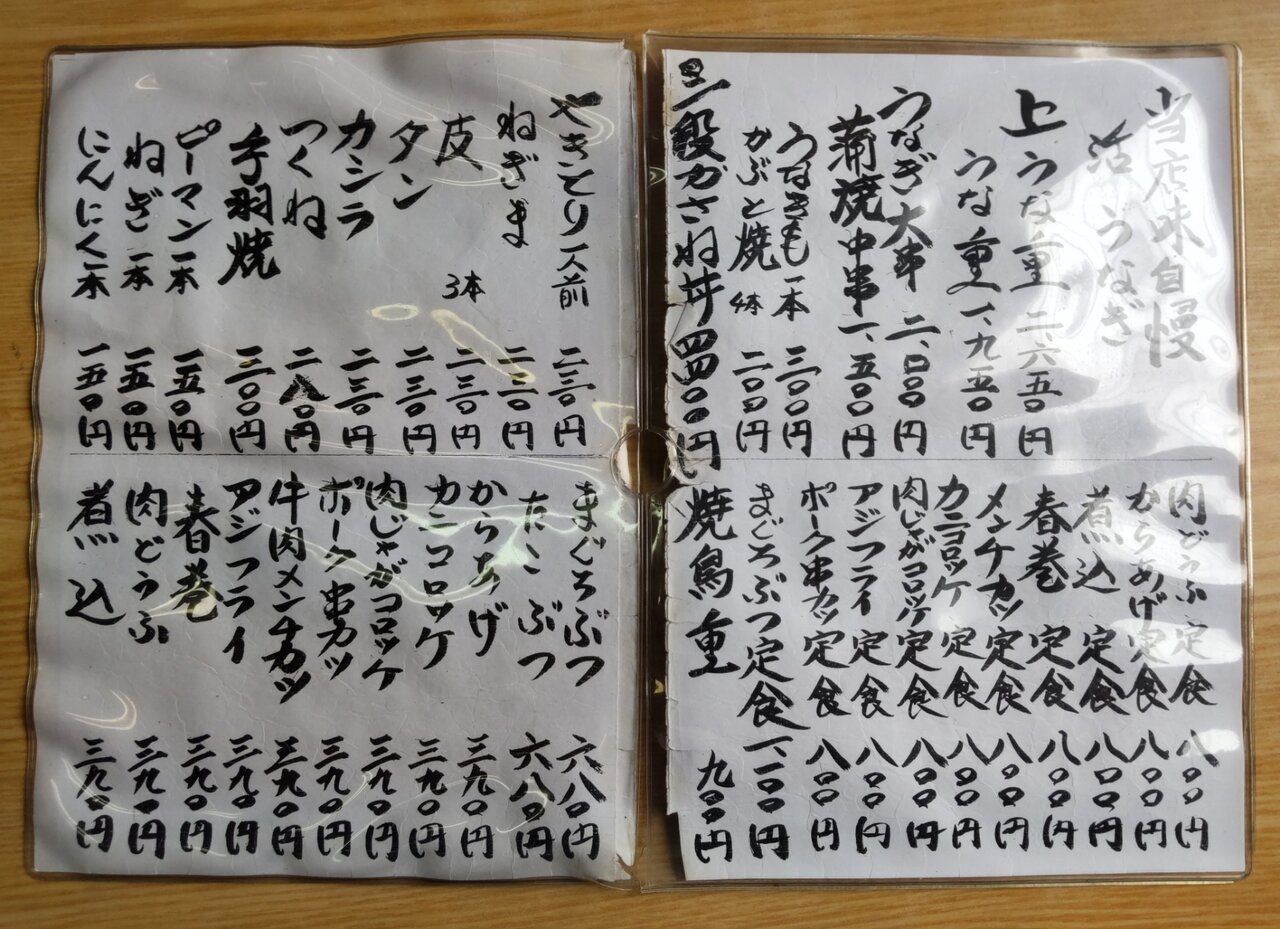 当店味自慢
活うなぎ
上うな重 二、六五〇円
うな重 一、九五〇円
うなぎ大串 二、〇〇〇円
蒲焼中串 一、五〇〇円
うなきも一本 三〇〇円
かぶと焼 4本 二〇〇円
三段がさね丼 四四〇〇円
肉どうふ定食 八〇〇円
からあげ定食 八〇〇円
煮込定食 八〇〇円
春巻定食 八〇〇円
メンチカツ定食 八〇〇円
カニコロッケ定食 八〇〇円
肉じゃがコロッケ定食 八〇〇円
アジフライ定食 八〇〇円
ポーク串カツ定食 八〇〇円
まぐろぶつ定食 一、一〇〇円
焼鳥重 九〇〇円
やきとり一人前 二三〇円
ねぎま 二三〇円
皮 3本 二三〇円
タン 二三〇円
カシラ 二三〇円
つくね 二八〇円
手羽焼 三〇〇円
ピーマン一本 一五〇円
ねぎ一本 一五〇円
にんにく一本 一五〇円
まぐろぶつ 六八〇円
たこぶつ 六八〇円
からあげ 三九〇円
カニコロッケ 三九〇円
肉じゃがコロッケ 三九〇円
ポーク串カツ 三九〇円
牛肉メンチカツ 三九〇円
アジフライ 三九〇円
春巻 三九〇円
肉どうふ 三九〇円
煮込 三九〇円